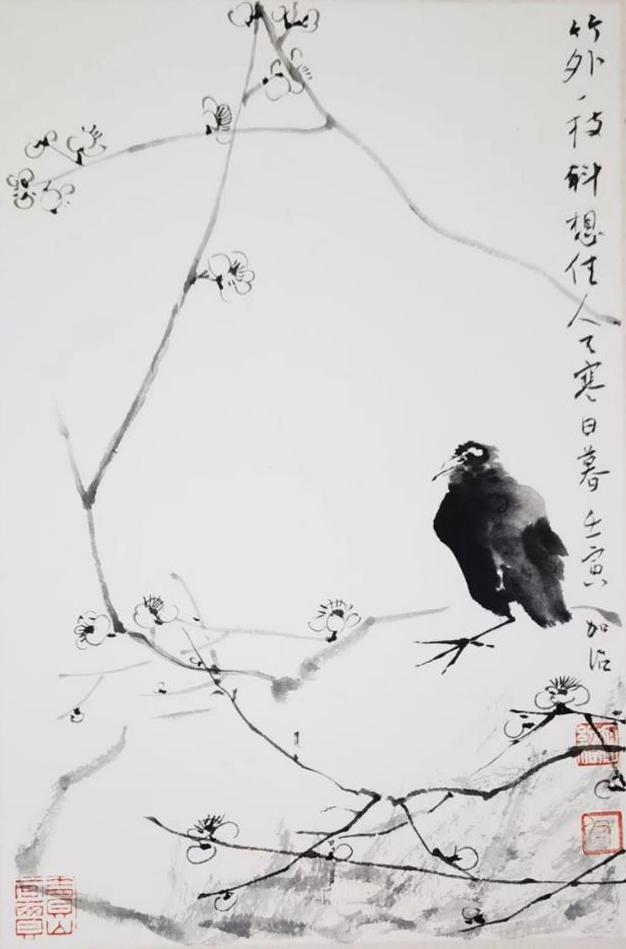 竹外一枝斜想佳人天寒日暮壬寅